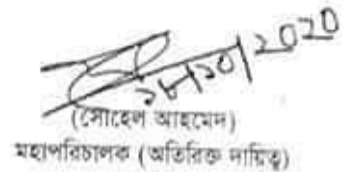 ২৮|১০|২০২০
(সোহেল আহমেদ)
মহাপরিচালক (অতিরিক্ত দায়িত্ব)